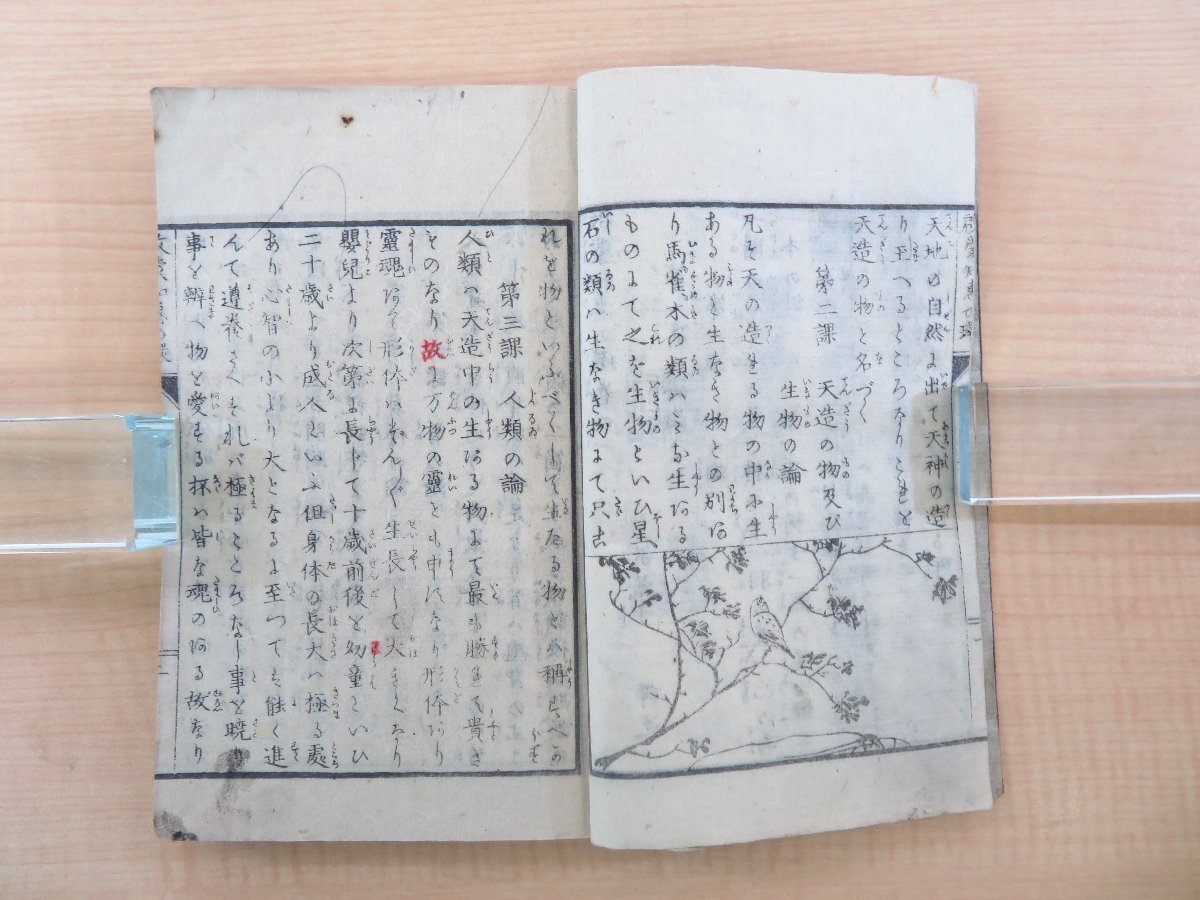 天地の自然に出て天神の造
り至へるところなりこれを
天造の物と名づく
第二課 天造の物及び
生物の論
凡そ天の造れる物の中に生
ある物と生なき物との別あ
り馬雀木の類ハミな生ある
ものにて之を生物といひ星、
石の類ハ生なき物にて只古
れを物といふべくして生たる物とハ稱すべ
第三課 人類の論
人類ハ天造中の生ある物にて最も勝れて貴き
ものなり故に万物の靈とも申になり形体あり
靈魂あり形体ハぜんぐ生長して大きくなり
嬰兒より次第に長じて十歳前後を幼童といひ
二十歳より成人といふ但身体の長大ハ極る處
あり心智の小より大となるに至つてハ能く進
んて遵養さへすれバ極るところなし事を暁り
事を辨へ物を愛する抔ハ皆な魂のある故なり